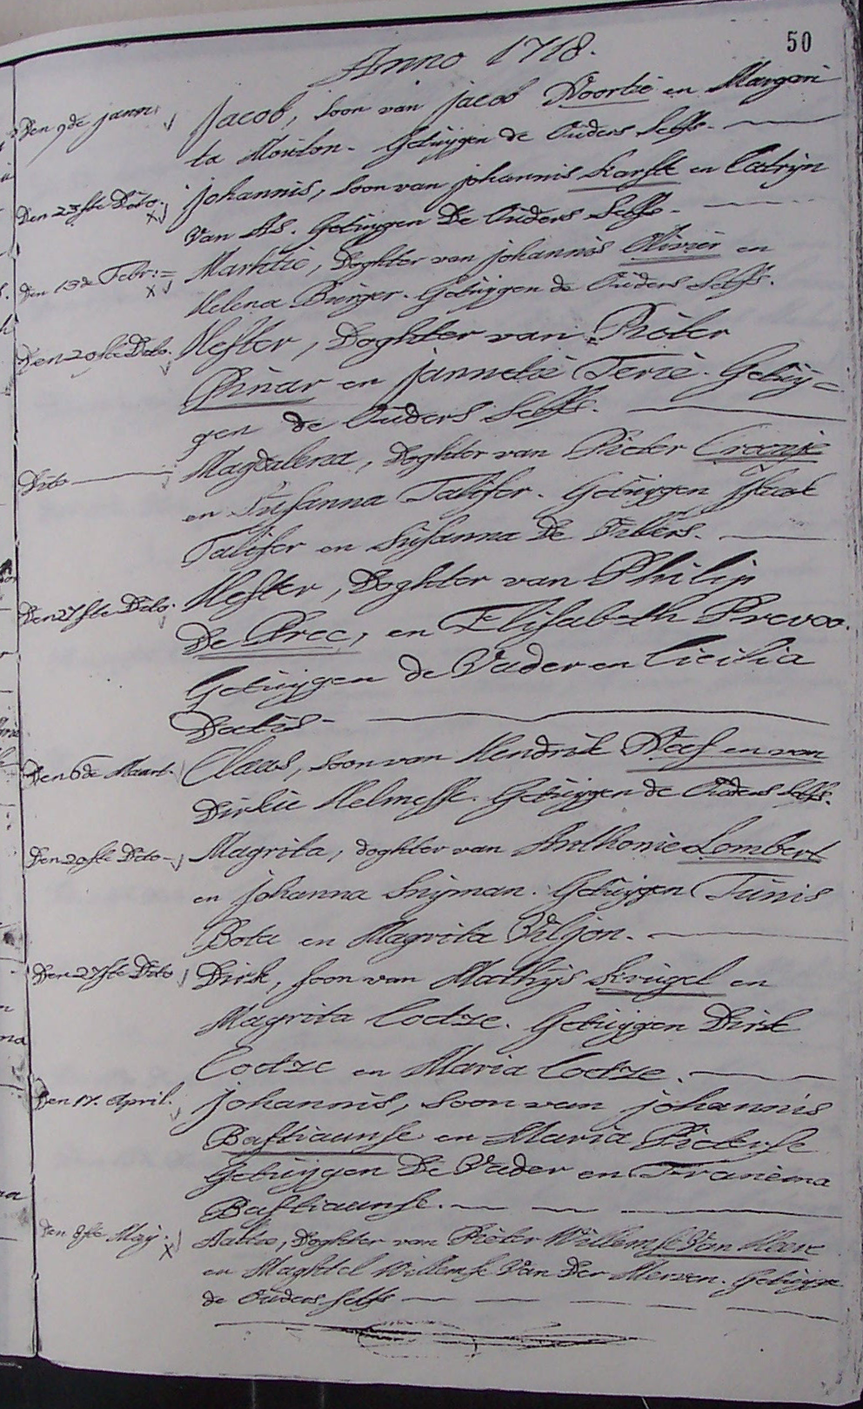 50
Anno 1718.
Den 9de janu: Jacob, soon van jacob Noortie en Margari
ta Mouton. Getuijgen de Ouders Selfs.
Den 23ste Dito. Johannis, soon van johannis Karste en Catrijn
Van As. Getuijgen De Ouders Selfs.
Den 13de Febr: Marhtie, Doghter van johannis Olivier en
Helena Burger. Getuijgen de Ouders Selfs.
Den 20ste Dito. Hester, Doghter van Pieter
Pinar en jannetie Terie. Getuij=
gen de Ouders Selfs.
Dito Magdalena, Doghter van Pieter Cronje
en Susanna Taljfer. Getuijgen Jsaak
Taljfer en Susanna De Villers.
Den 27ste Dito. Hester, Doghter van Philip
De Pree, en Elisabeth Prevoo.
Getuijgen de Vader en Cicilia
Datis
Den 6de Maart. Claas, soon van Hendrik Neef en van
Dirkie Helmesse. Getuijgen de Ouders Selfs.
Den 20ste Dito Magrita, doghter van Anthonie Lombert
en johanna Snijman. Getuijgen Tunis
Bota en Magrita Viljon.
Den 27ste Dito Dirk, soon van Mathijs Krugel en
Magrita Coetze. Getuijgen Dirk
Coetze en Maria Coetze.
Den 17. April. Johannis, soon van johannis
Bastiaanse en Maria Pieterse
Getuijgen De Vader en
Bastiaanse.
Den 8ste Maij. Aaltie, Doghter van Pieter Willemse Van Heere
en Maghtel Willemse Van Der Merwen. Getuijge
de Ouders selfs